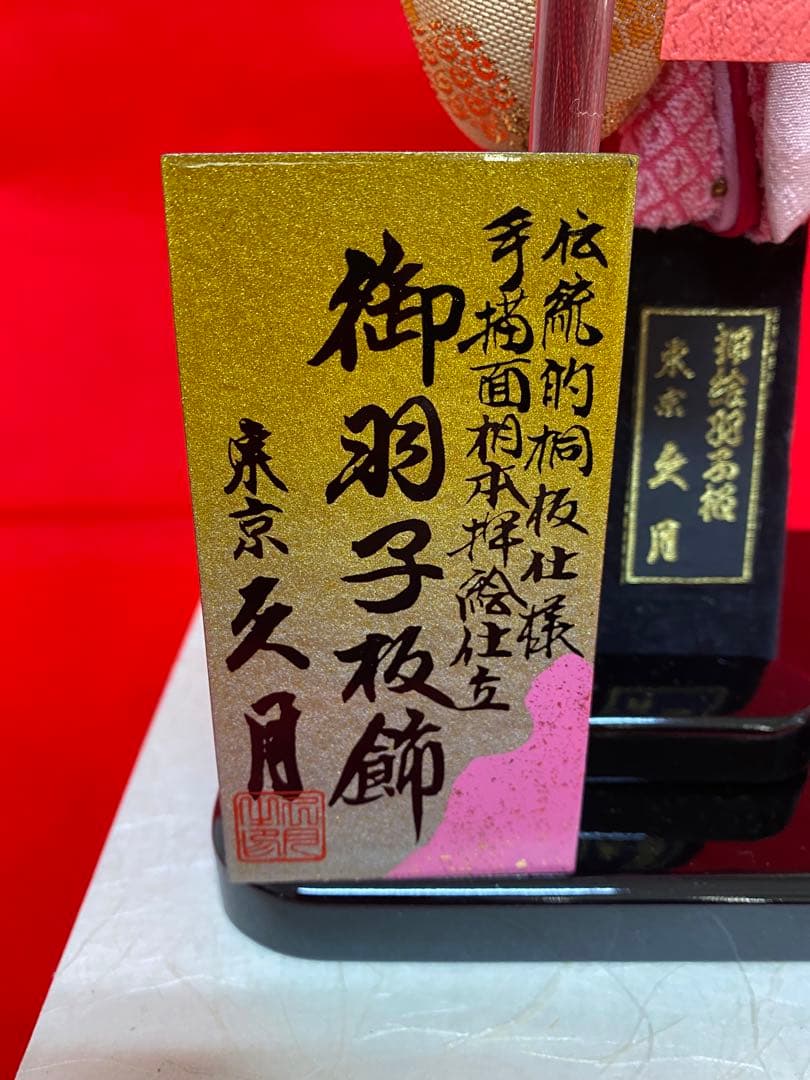 伝統的桐板仕様
手描面相本押絵仕立
御羽子板飾
東京久月
押絵羽子板
東京久月